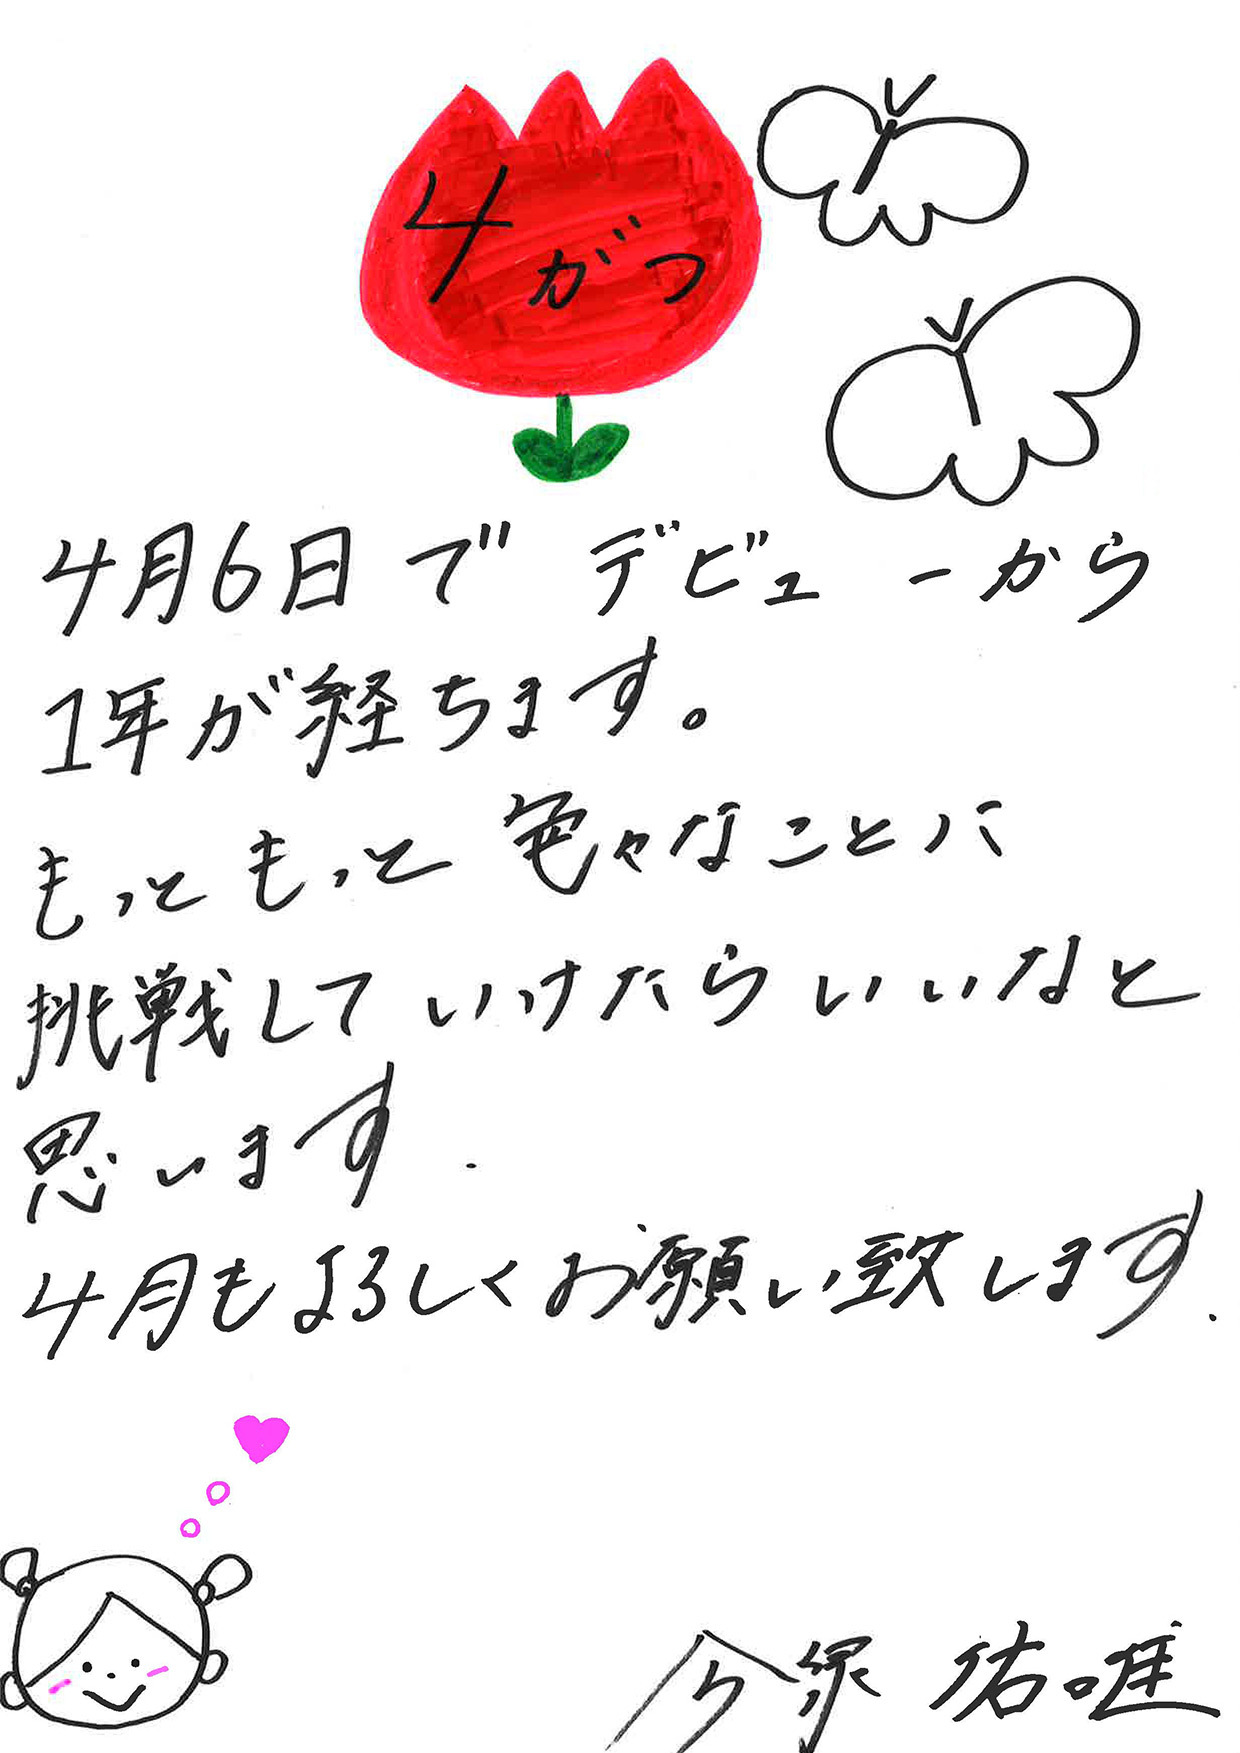 4がつ
4月6日で デビューから
1年が経ちます。
もっともっと 色々なことに
挑戦して いけたら いいなと
思います.
4月もよろしくお願い致します.
今泉 佑唯